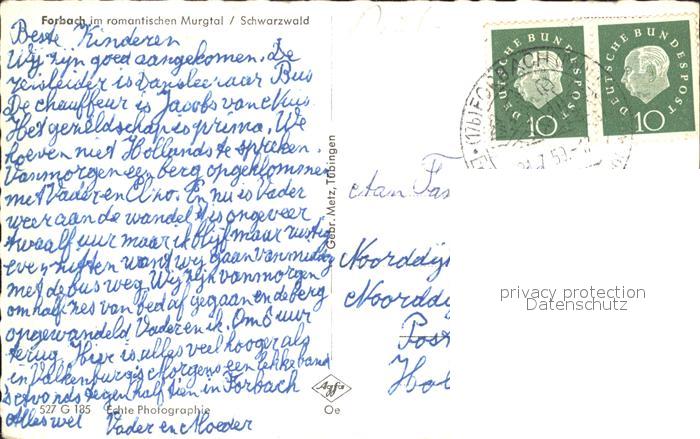 Forbach im romantischen Murgtal / Schwarzwald
Beste Kinderen
Wij zijn goed aangekomen. De
reisleider is Dansleeraar Bus
De chauffeur is Jacobs van Kuis
Het gezeldschap is prima. We
hoeven niet Hollands te spreken.
Vanmorgen een berg opgeklommen
met Vader en En nu is Vader
weer aan de wandel t is ongeveer
twaalf uur maar ik blijf maar rustig
even zitten want wij gaan vanmiddag
met de bus weg. Wij zijn vanmorgen
om half zes van bed af gegaan en de berg
opgewandeld Vader en ik. Om 6 uur
terug. Hier is alles veel hooger als
in Valkenburg is Morgens een lekke band
s avonds tegen half tien in Forbach
527 G 185 Echte Photographie
Alles wel Vader en Moeder
Gebr. Metz, Tübingen
Agfa
Oe
DEUTSCHE BUNDESPOST
10
DEUTSCHE BUNDESPOST
10
(17b) FORBACH
Aan Fa
Noorddij
Noorddij
Post
Hol
privacy protection
Datenschutz